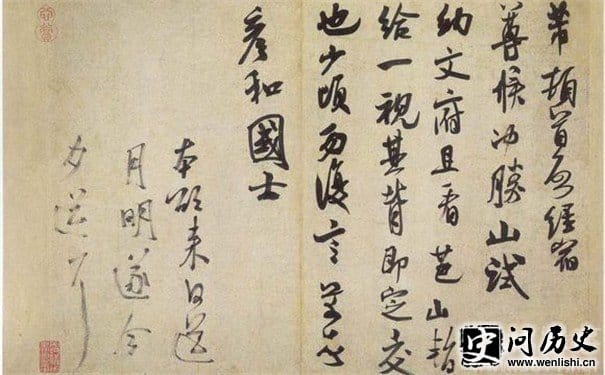 芾頓首啓經宿
尊候沖勝山試
納文府且看芭山暫
給一視其背即定交
也少頃勿復言芾頓首
彥和國士
本欲來日送
月明遂今
夕送耳
史 问历史
www.wenlishi.cn